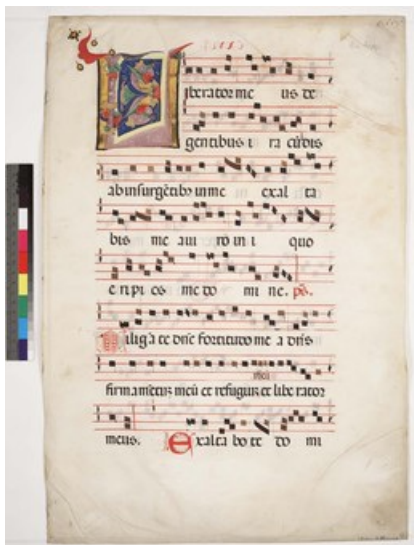 Liberator me us de
gentibus i ra cūdis
ab insurgētibꝫ in me exal ta
bis me a ui ro in i quo
e ripi es me do mi ne. ps.
Diligā te dn̄e fortitudo me a dn̄s
meū
firmamētuꝫ meū et refugiuꝫ et libe rator
meus. Exalta bo te do mi